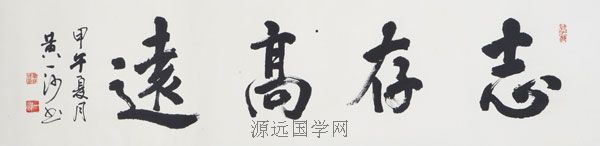 志存高遠
甲午夏月
黄一沙
源远国学网